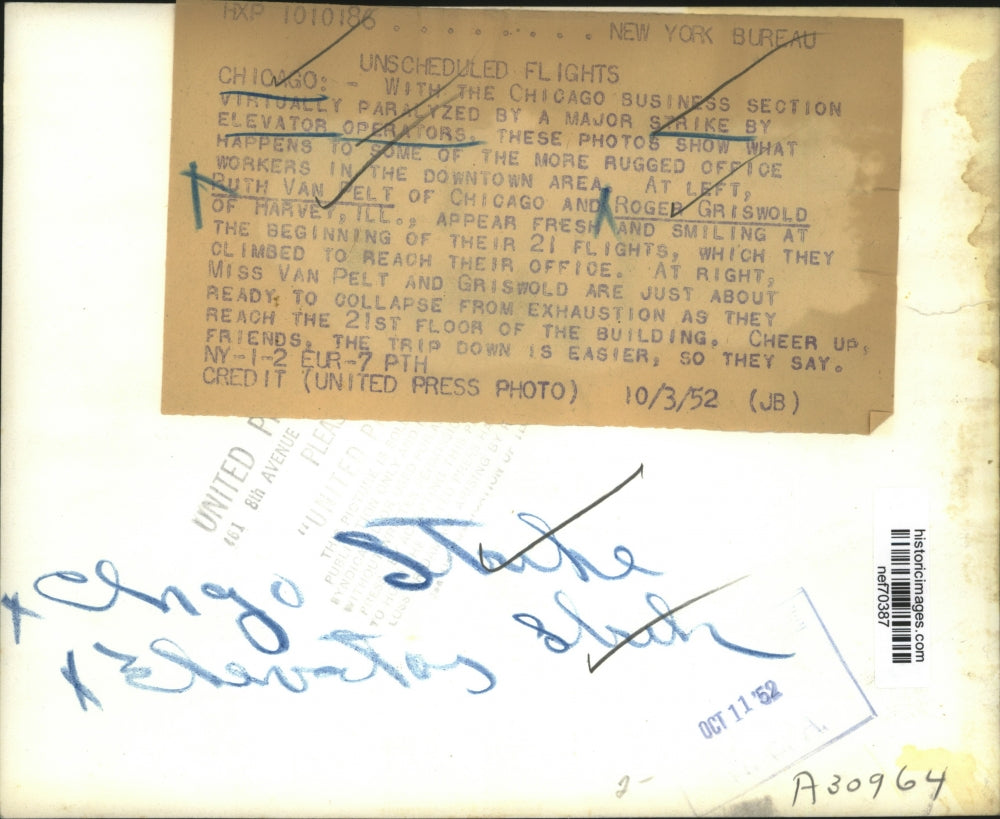 HXP 1010186 . . . . . . . . . NEW YORK BUREAU
UNSCHEDULED FLIGHTS
CHICAGO: - WITH THE CHICAGO BUSINESS SECTION
VIRTUALLY PARALYZED BY A MAJOR STRIKE BY
ELEVATOR OPERATORS, THESE PHOTOS SHOW WHAT
HAPPENS TO SOME OF THE MORE RUGGED OFFICE
WORKERS IN THE DOWNTOWN AREA. AT LEFT,
RUTH VAN PELT OF CHICAGO AND ROGER GRISWOLD
OF HARVEY, ILL., APPEAR FRESH AND SMILING AT
THE BEGINNING OF THEIR 21 FLIGHTS, WHICH THEY
CLIMBED TO REACH THEIR OFFICE. AT RIGHT,
MISS VAN PELT AND GRISWOLD ARE JUST ABOUT
READY TO COLLAPSE FROM EXHAUSTION AS THEY
REACH THE 21ST FLOOR OF THE BUILDING. CHEER UP,
FRIENDS, THE TRIP DOWN IS EASIER, SO THEY SAY.
NY-1-2 EUR-7 PTH
CREDIT (UNITED PRESS PHOTO) 10/3/52 (JB)
UNITED
461 8th AVENUE
"UNITED
x Chgo Strike
x Elevators Strike
historicimages.com
nef70387
OCT 11 '52
2-
A30964